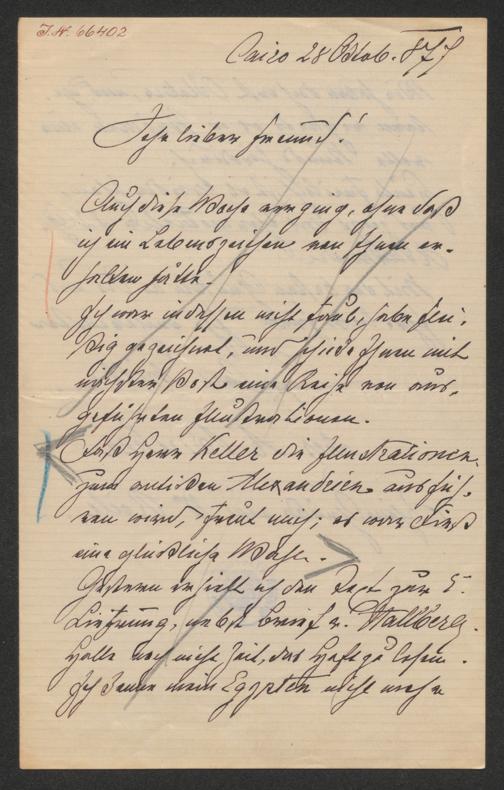 J.N. 66402
Cairo 28 Oktob. 877
Sehr lieber Freund!
Auch diese Woche verging, ohne daß
ich ein Lebenszeichen von Ihnen er-
halten hätte.
Ich war indessen nicht faul, habe flei-
ßig gezeichnet, und schicke Ihnen mit
nächster Post eine Reihe von aus-
geführten Illustrationen.
Daß Herr Keller die Illustrationen
zum antiken Alexandrien ausfüh-
ren wird, freut mich; es war dieß
eine glückliche Wahl.
Gestern erhielt ich den Text zur 5.
Lieferung, nebst Brief v. Hallberg.
Hatte noch nicht Zeit, das Heft zu lesen.
Ich kenne mein Egypten nicht mehr